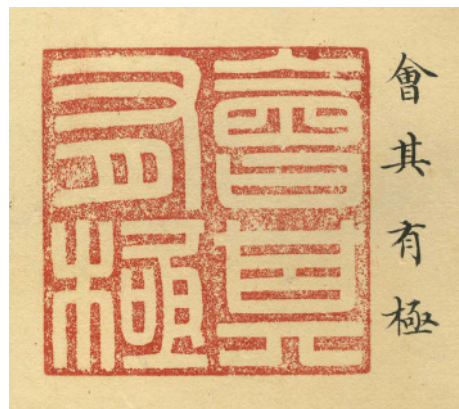 會其
有極
會其有極